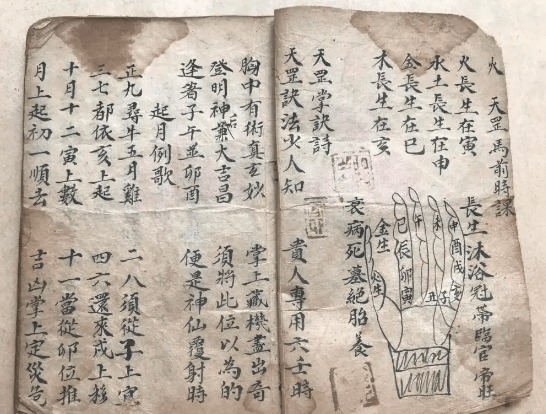 火 天罡馬前時課
火長生在寅 長生沐浴冠帶臨官帝旺
水土長生在申
金長生在巳
木長生在亥
衰病死墓絕胎養
申酉戌亥
未
午
巳辰卯寅
丑子
金生
天罡掌訣詩
天罡訣法少人知 貴人專用六壬時
胸中有術真玄妙 掌上藏機盡出奇
登明神后大吉昌 須將此位以為的
逢着子午並卯酉 便是神仙覆射時
起月例歌
正九尋牛五月雞 二八須從子上
三七都依亥上起 四六還來戌上移
十月十二寅上數 十一當從卯位推
月上起初一順去 吉凶掌上定災